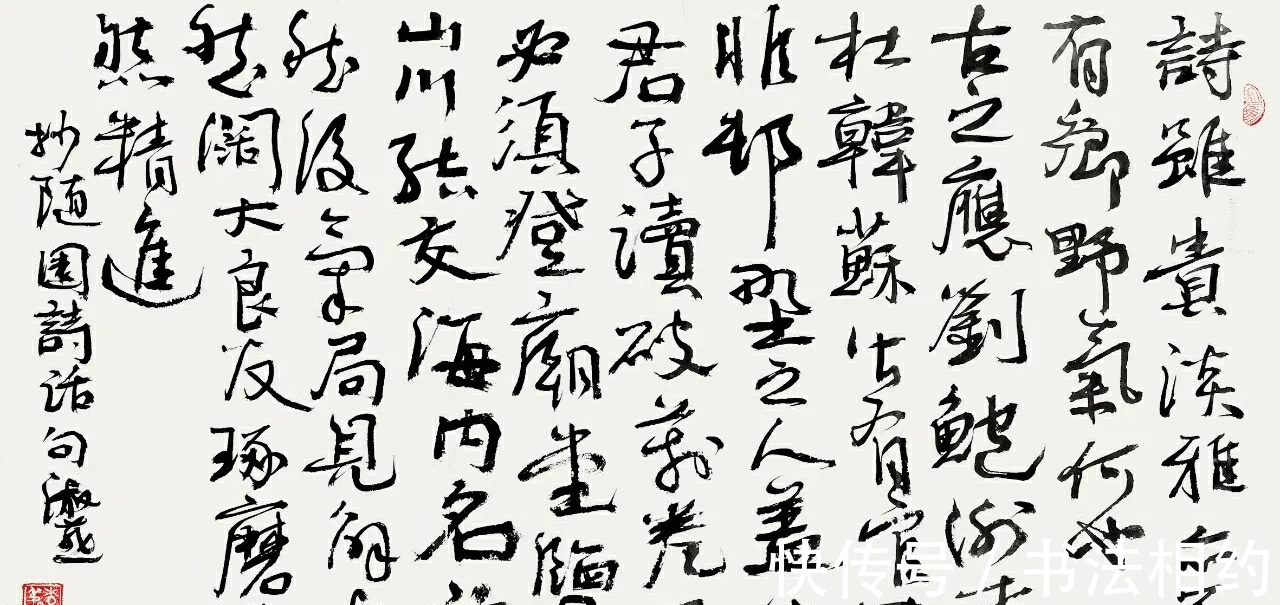 詩雖貴淡雅
有鄉野氣何也
古之應劉鮑謝
杜韓蘇皆有官
非邨野之人蓋
君子讀破萬卷
必須登廟堂
山川結交海内名
然後氣局見解
然闊大良友琢磨
然精進
抄随園詩话句
快传号 / 书法相约